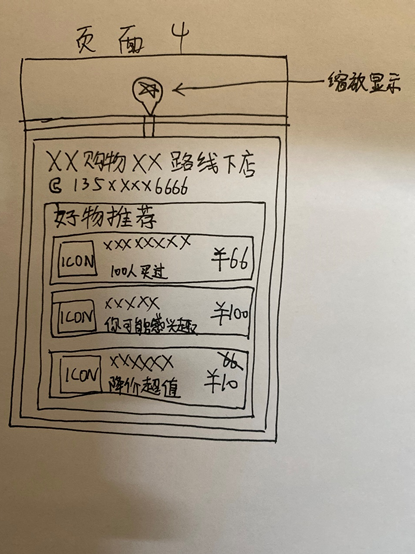 页面4
缩放显示
XX购物XX路线下店
135xxxx6666
好物推荐
ICON
XXXXXXXX
100人买过
¥66
ICON
XXXXX
你可能感兴趣
¥100
ICON
XXXXXX
降价超值
66
¥10